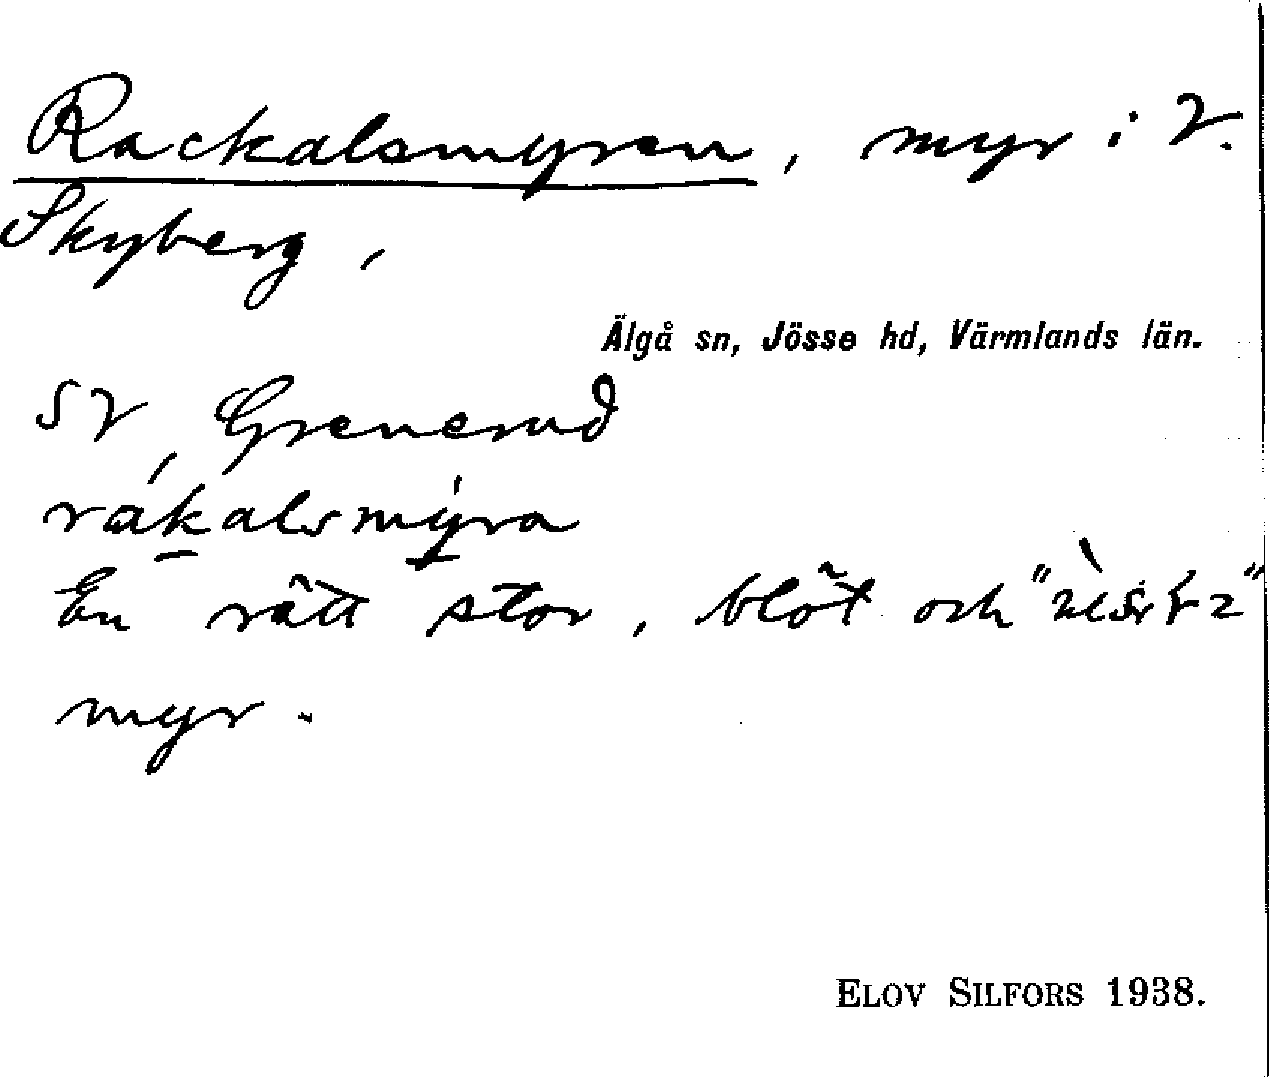 Rackalsmyren, myr i V.
Skyberg,
Älgå sn, Jösse hd, Värmlands län.
SV, Grenerud
rákalsmy̍ra
En rätt stor, blöt och
myr.
ELOV SILFORS 1938.